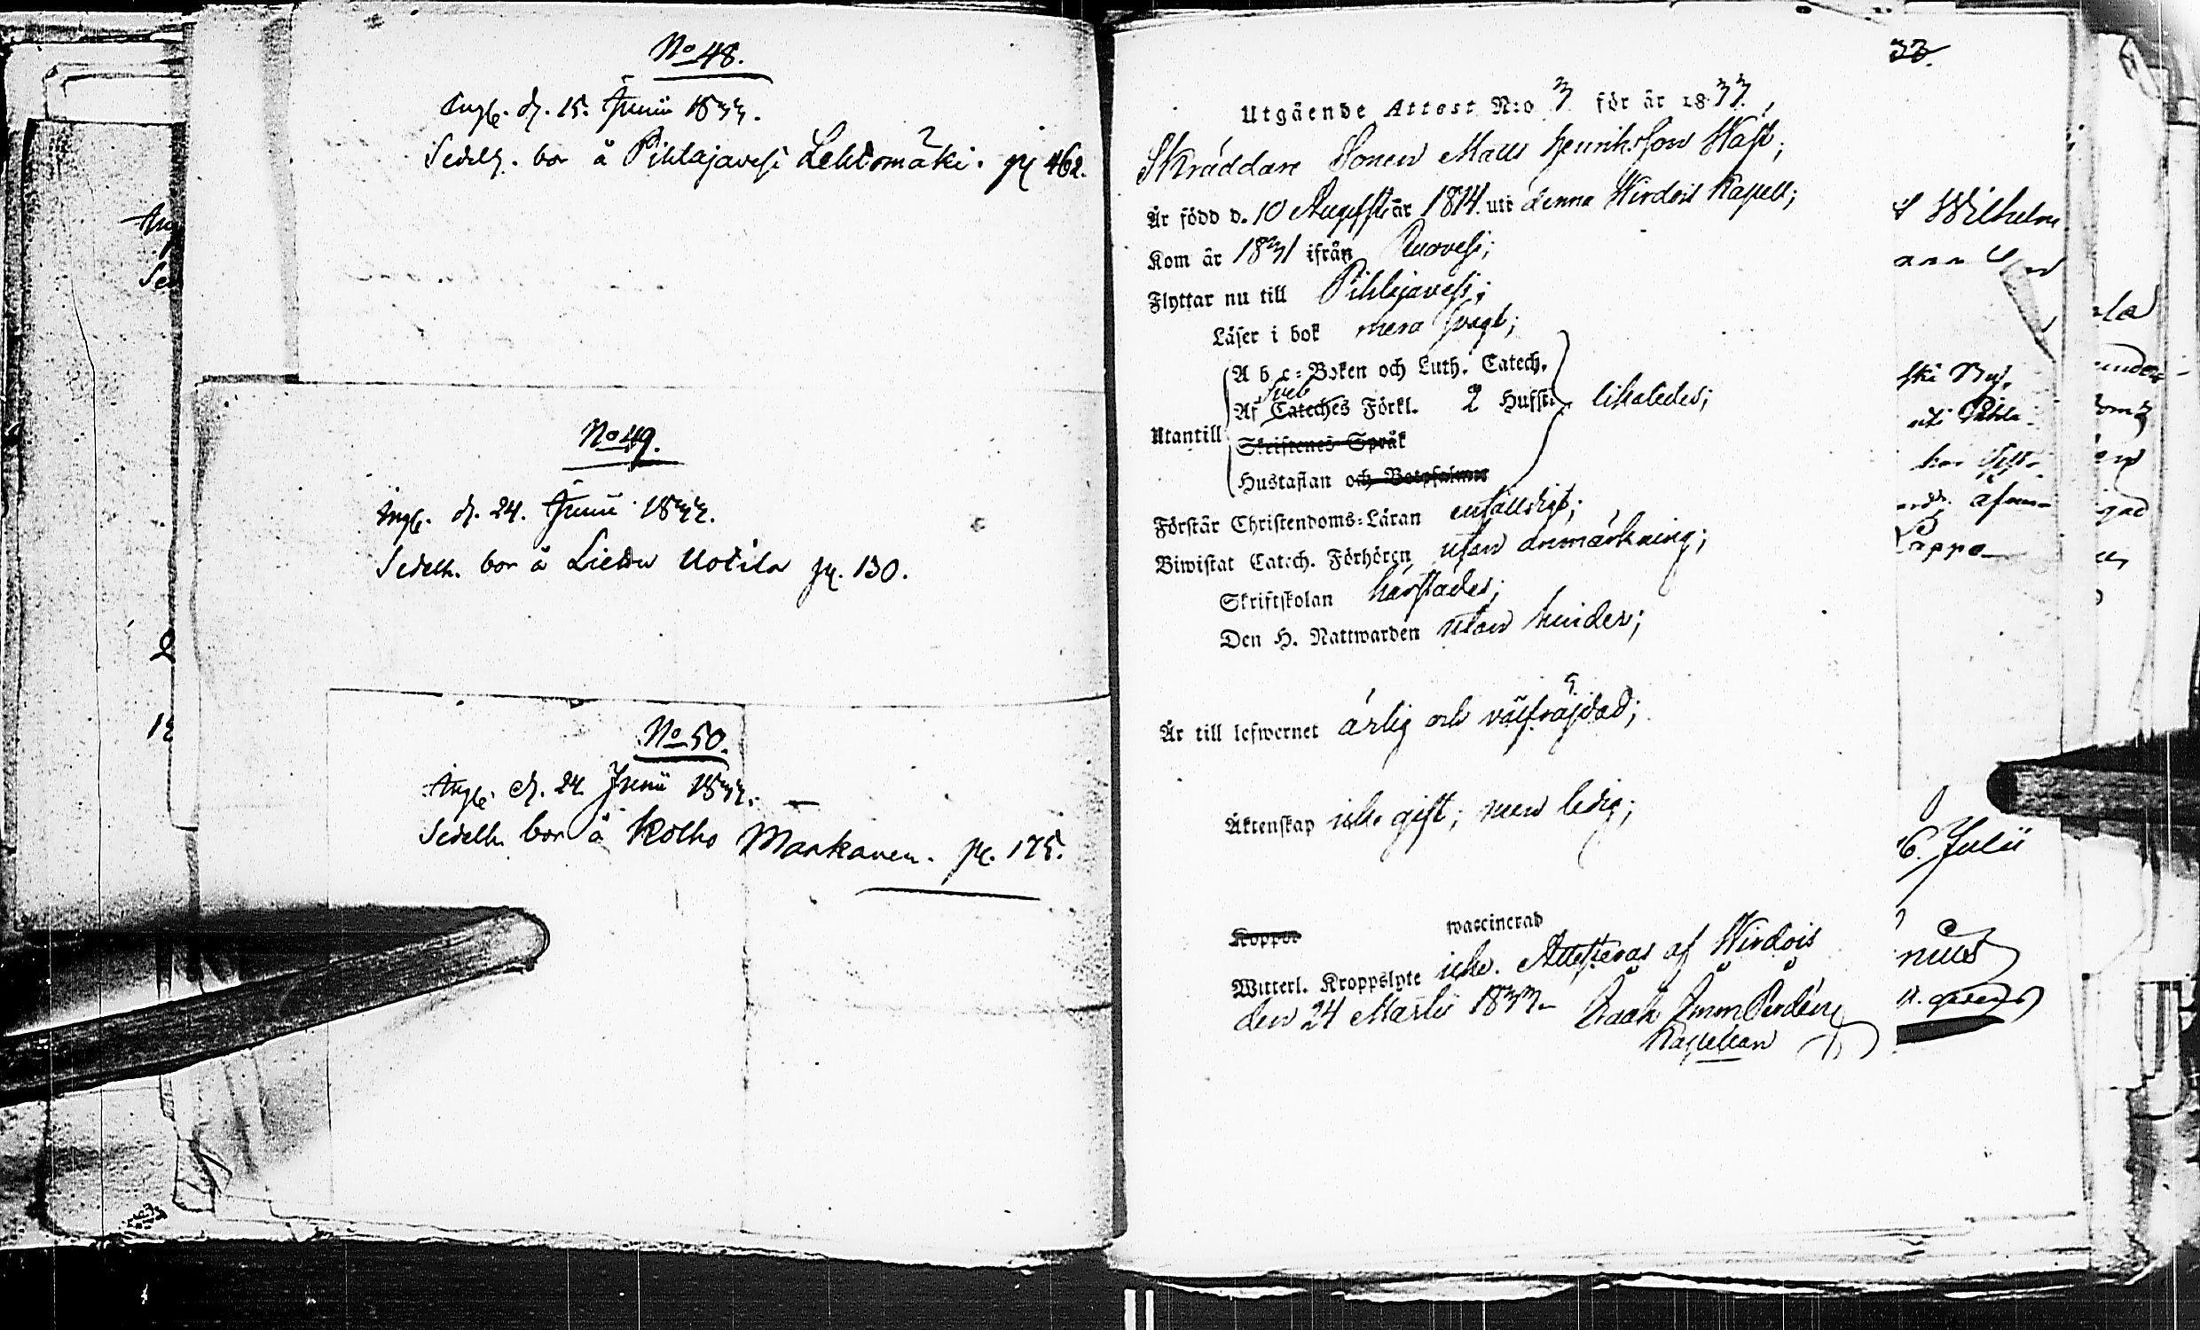 No 48.
Ingf. d. 15. Junii 1833.
Sedelh. bor å Pihlajavesi Lehtomäki. pg 462.
No 49.
Ingf. d. 24. Junii 1833.
Sedelh. bor å Liedu Uotila pg. 130.
No 50.
Ingf. d. 24 Junii 1833.
Sedelh. bor å Kolho Mankanen. pg. 175.
33.
Utgående Attest N:o 3 för år 1833,
Skräddare Sonen Matts Henriksson
Är född d. 10 Augusti år 1814. uti denna Wirdois Kapell;
Kom år 1831 ifrån Ruovesi;
Flyttar nu till Pihlajavesi;
Läser i bok mera svagt;
A b c-Boken och Luth. Catech.
Sveb
Af Cateches Förkl. 2 Hufst. likaledes;
Utantill
Skriftenes Språk
Hustaflan och Botpsalmer
Förstår Christendoms-Läran enfalldigt;
Biwistat Catech. Förhören utan anmärkning;
Skriftskolan härstädes;
Den H. Nattwarden utan hinder;
Är till lefwernet ärlig och välfräjdad;
Äktenskap icke gift; men ledig;
Koppor waccinerad
Witterl. Kroppslyte icke. Attesteras af Wirdois
den 24 Martii 1833.
Kapellan
Wilhelm
6. Julii